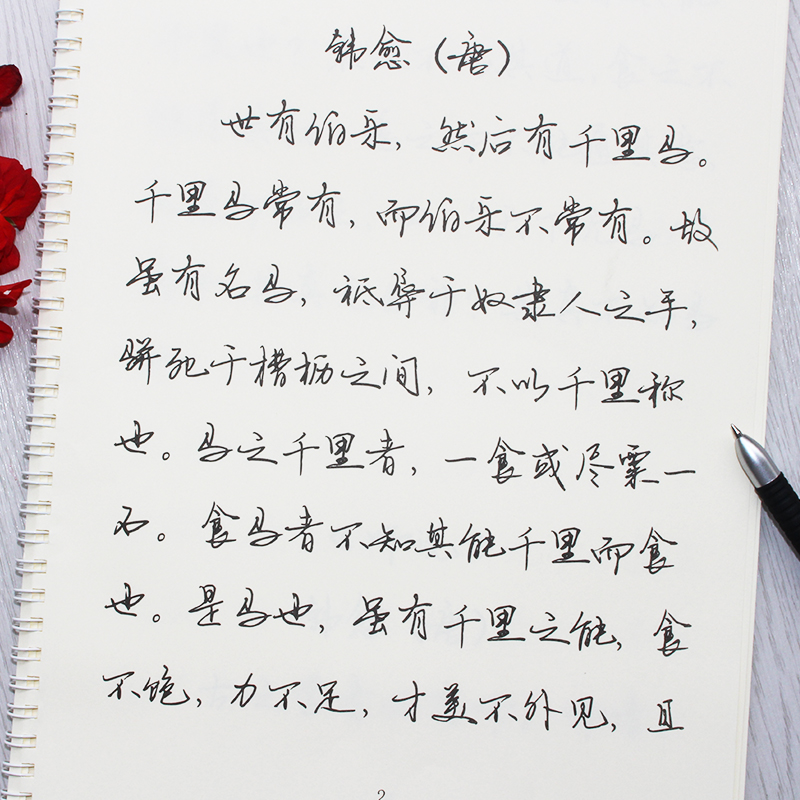 韩愈（唐）
世有伯乐，然后有千里马。
千里马常有，而伯乐不常有。故
虽有名马，祗辱于奴隶人之手，
骈死于槽枥之间，不以千里称
也。马之千里者，一食或尽粟一
石。食马者不知其能千里而食
也。是马也，虽有千里之能，食
不饱，力不足，才美不外见，且
2